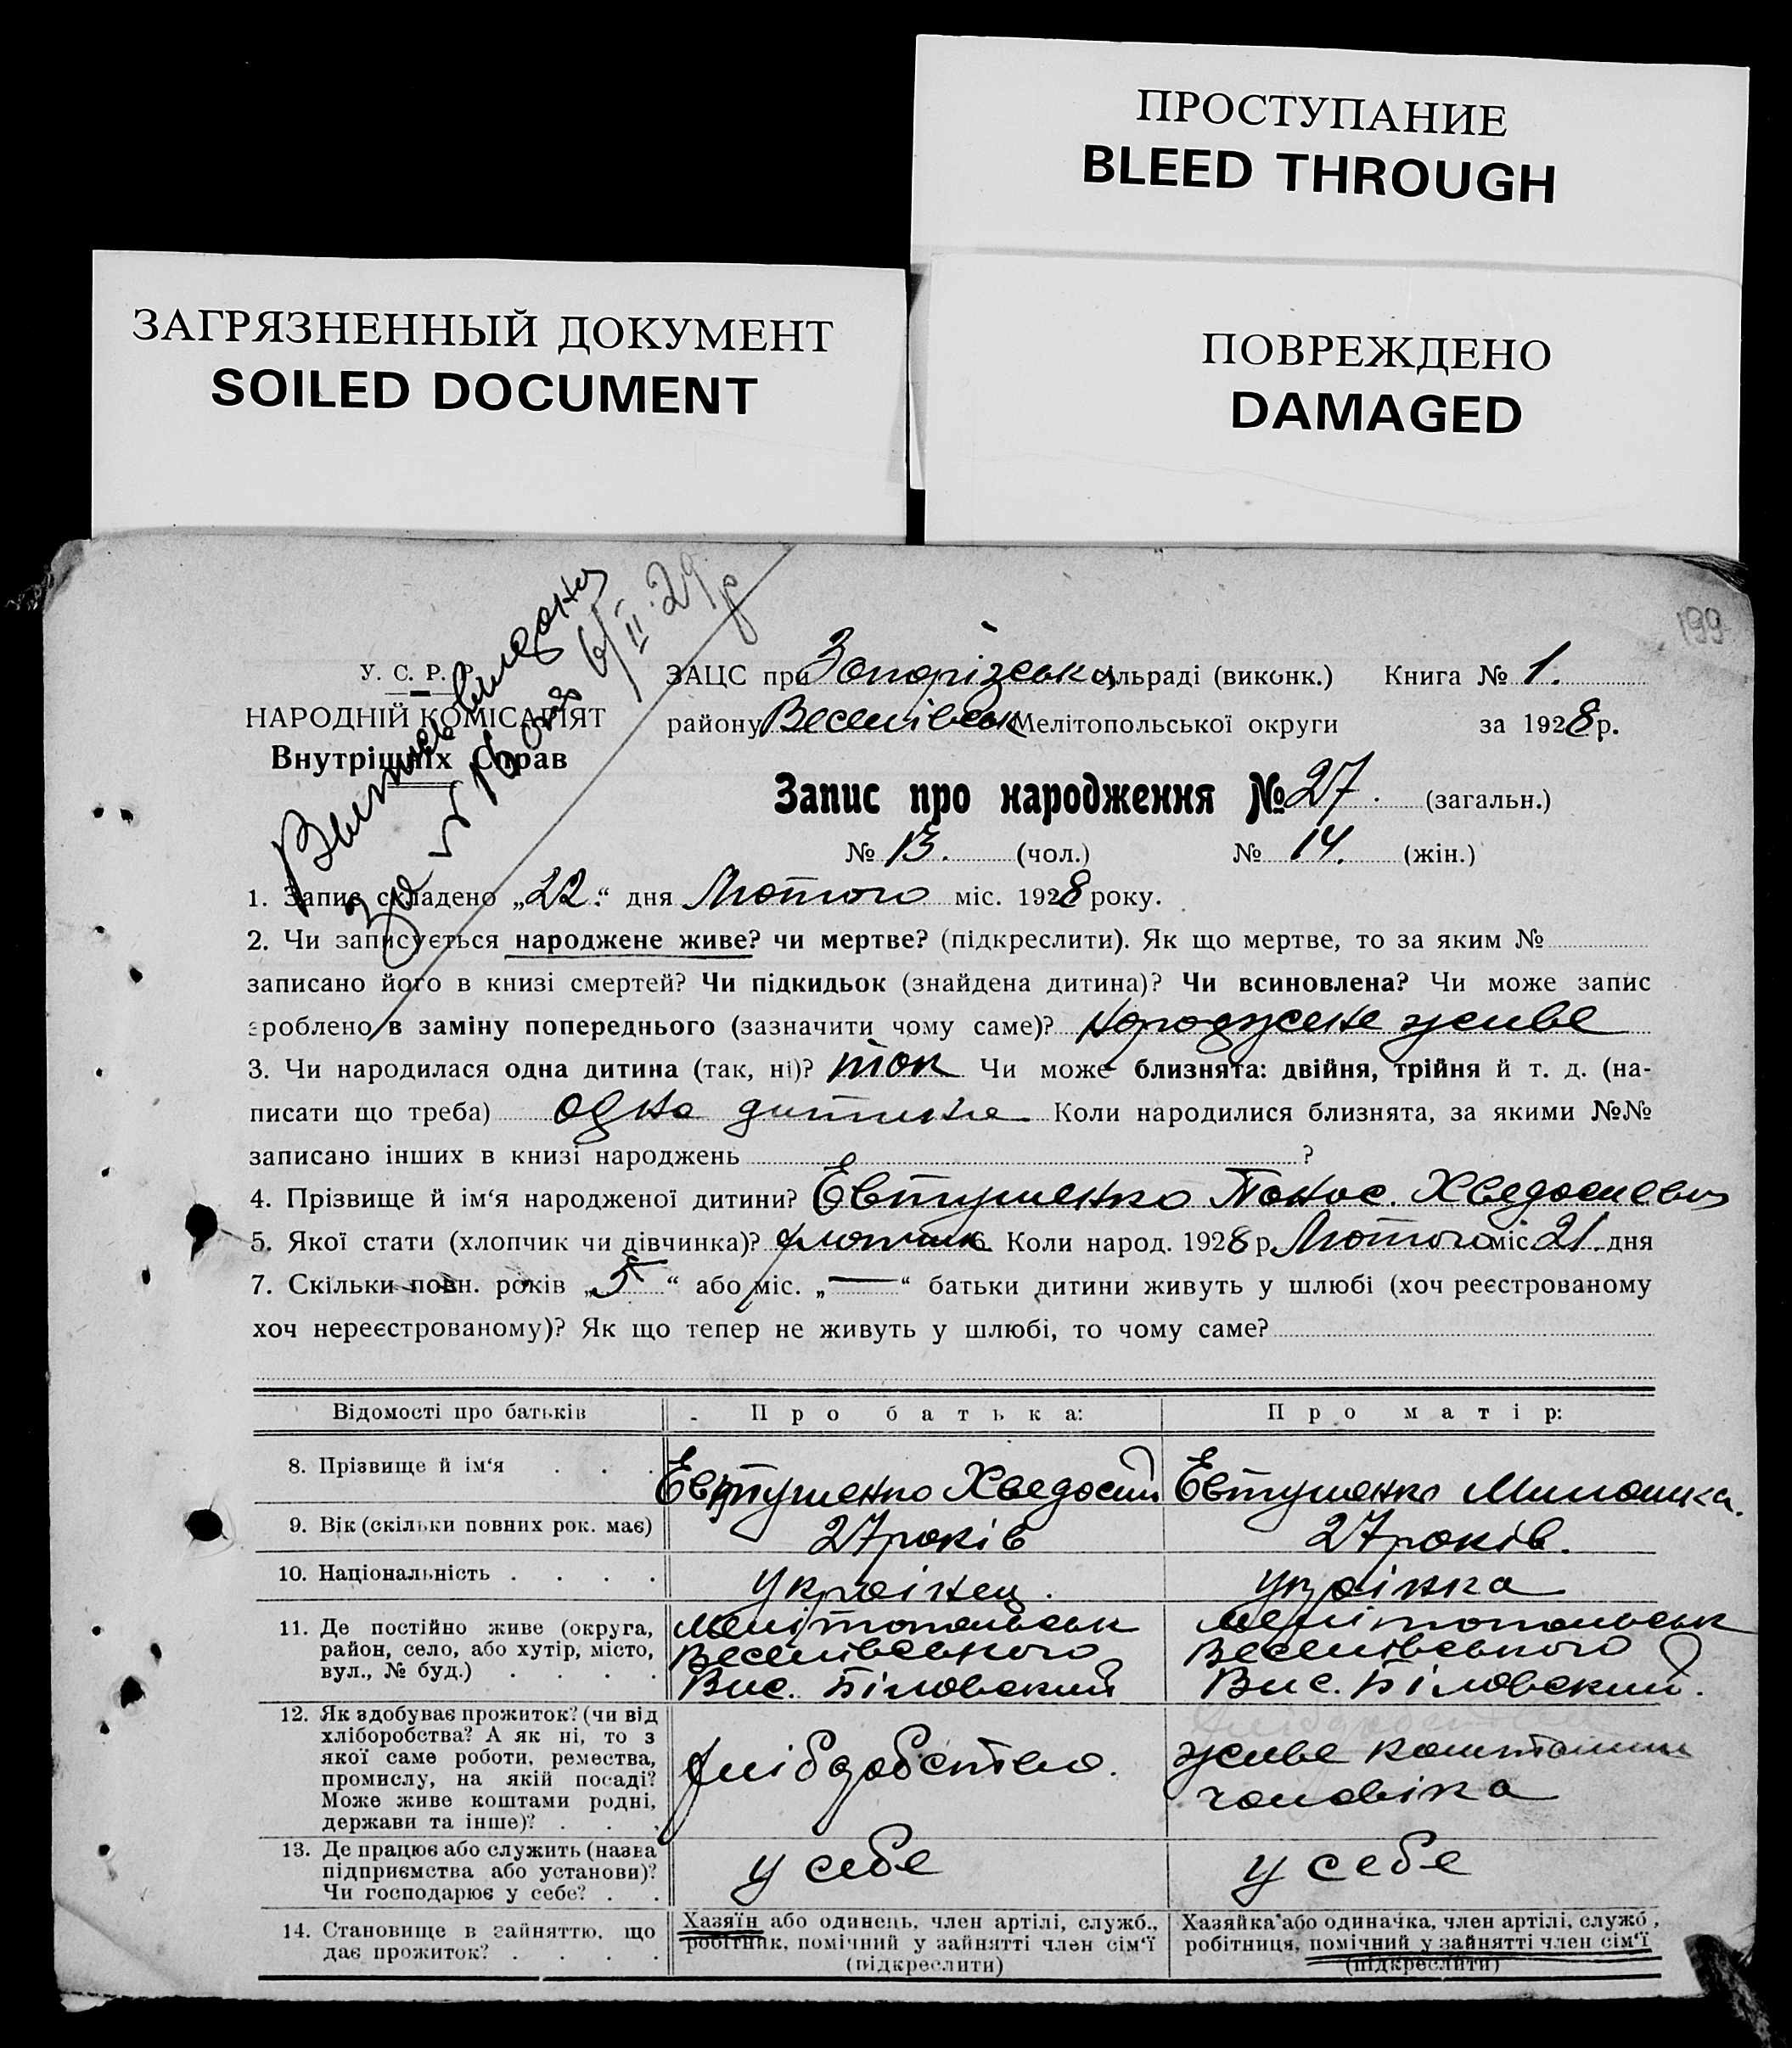 ПРОСТУПАНИЕ
BLEED THROUGH
ЗАГРЯЗНЕННЫЙ ДОКУМЕНТ
SOILED DOCUMENT
ПОВРЕЖДЕНО
DAMAGED
199
6/II 29 р
У. С. Р. Р.
НАРОДНІЙ КОМІСАРІЯТ
Внутрішніх Справ
ЗАЦС при Запорізськ сільраді (виконк.) Книга № 1.
району Веселівськ Мелітопольської округи за 1928 р.
Запис про народження № 27. (загальн.)
№ 13. (чол.) № 14. (жін.)
1. Запис складено „22.“ дня Лютого міс. 1928 року.
2. Чи записується народжене живе? чи мертве? (підкреслити). Як що мертве, то за яким №
записано його в книзі смертей? Чи підкидьок (знайдена дитина)? Чи всиновлена? Чи може запис
зроблено в заміну попереднього (зазначити чому саме)? народжене живе
3. Чи народилася одна дитина (так, ні)? так Чи може близнята: двійня, трійня й т. д. (на-
писати що треба) одна дитина Коли народилися близнята, за якими №№
записано інших в книзі народжень ?
4. Прізвище й ім‘я народженої дитини? Евтушенко Панас. Хведосиевич
5. Якої стати (хлопчик чи дівчинка)? хлопчик 6. Коли народ. 1928 р Лютого міс 21. дня
7. Скільки повн. років „5“ або міс. „—“ батьки дитини живуть у шлюбі (хоч реєстрованому
хоч нереєстрованому)? Як що тепер не живуть у шлюбі, то чому саме?
Відомості про батьків Про батька: Про матір:
8. Прізвище й ім‘я . . . Евтушенко Хведосий Евтушенко
9. Вік (скільки повних рок. має) 27 років 27 років.
10. Національність . . . . українец. українка
11. Де постійно живе (округа,
район, село, або хутір, місто,
вул., № буд.) . . . .
Мелітопольськ
Веселівського
Вис. Біловский
Мелітопольськ
Веселівського
Вис. Біловский.
12. Як здобуває прожиток? (чи від
хліборобства? А як ні, то з
якої саме роботи, ремества,
промислу, на якій посаді?
Може живе коштами родні,
держави та інше)? . . .
живе коштами
чоловіка
13. Де працює або служить (назва
підприємства або установи)?
Чи господарює у себе? . .
у себе
у себе
14. Становище в зайняттю, що
дає прожиток? . . . .
Хазяїн або одинець, член артілі, служб.,
робітник, помічний у зайнятті член сім‘ї
(підкреслити)
Хазяйка або одиначка, член артілі, служб.,
робітниця, помічний у зайнятті член сім‘ї
(підкреслити)